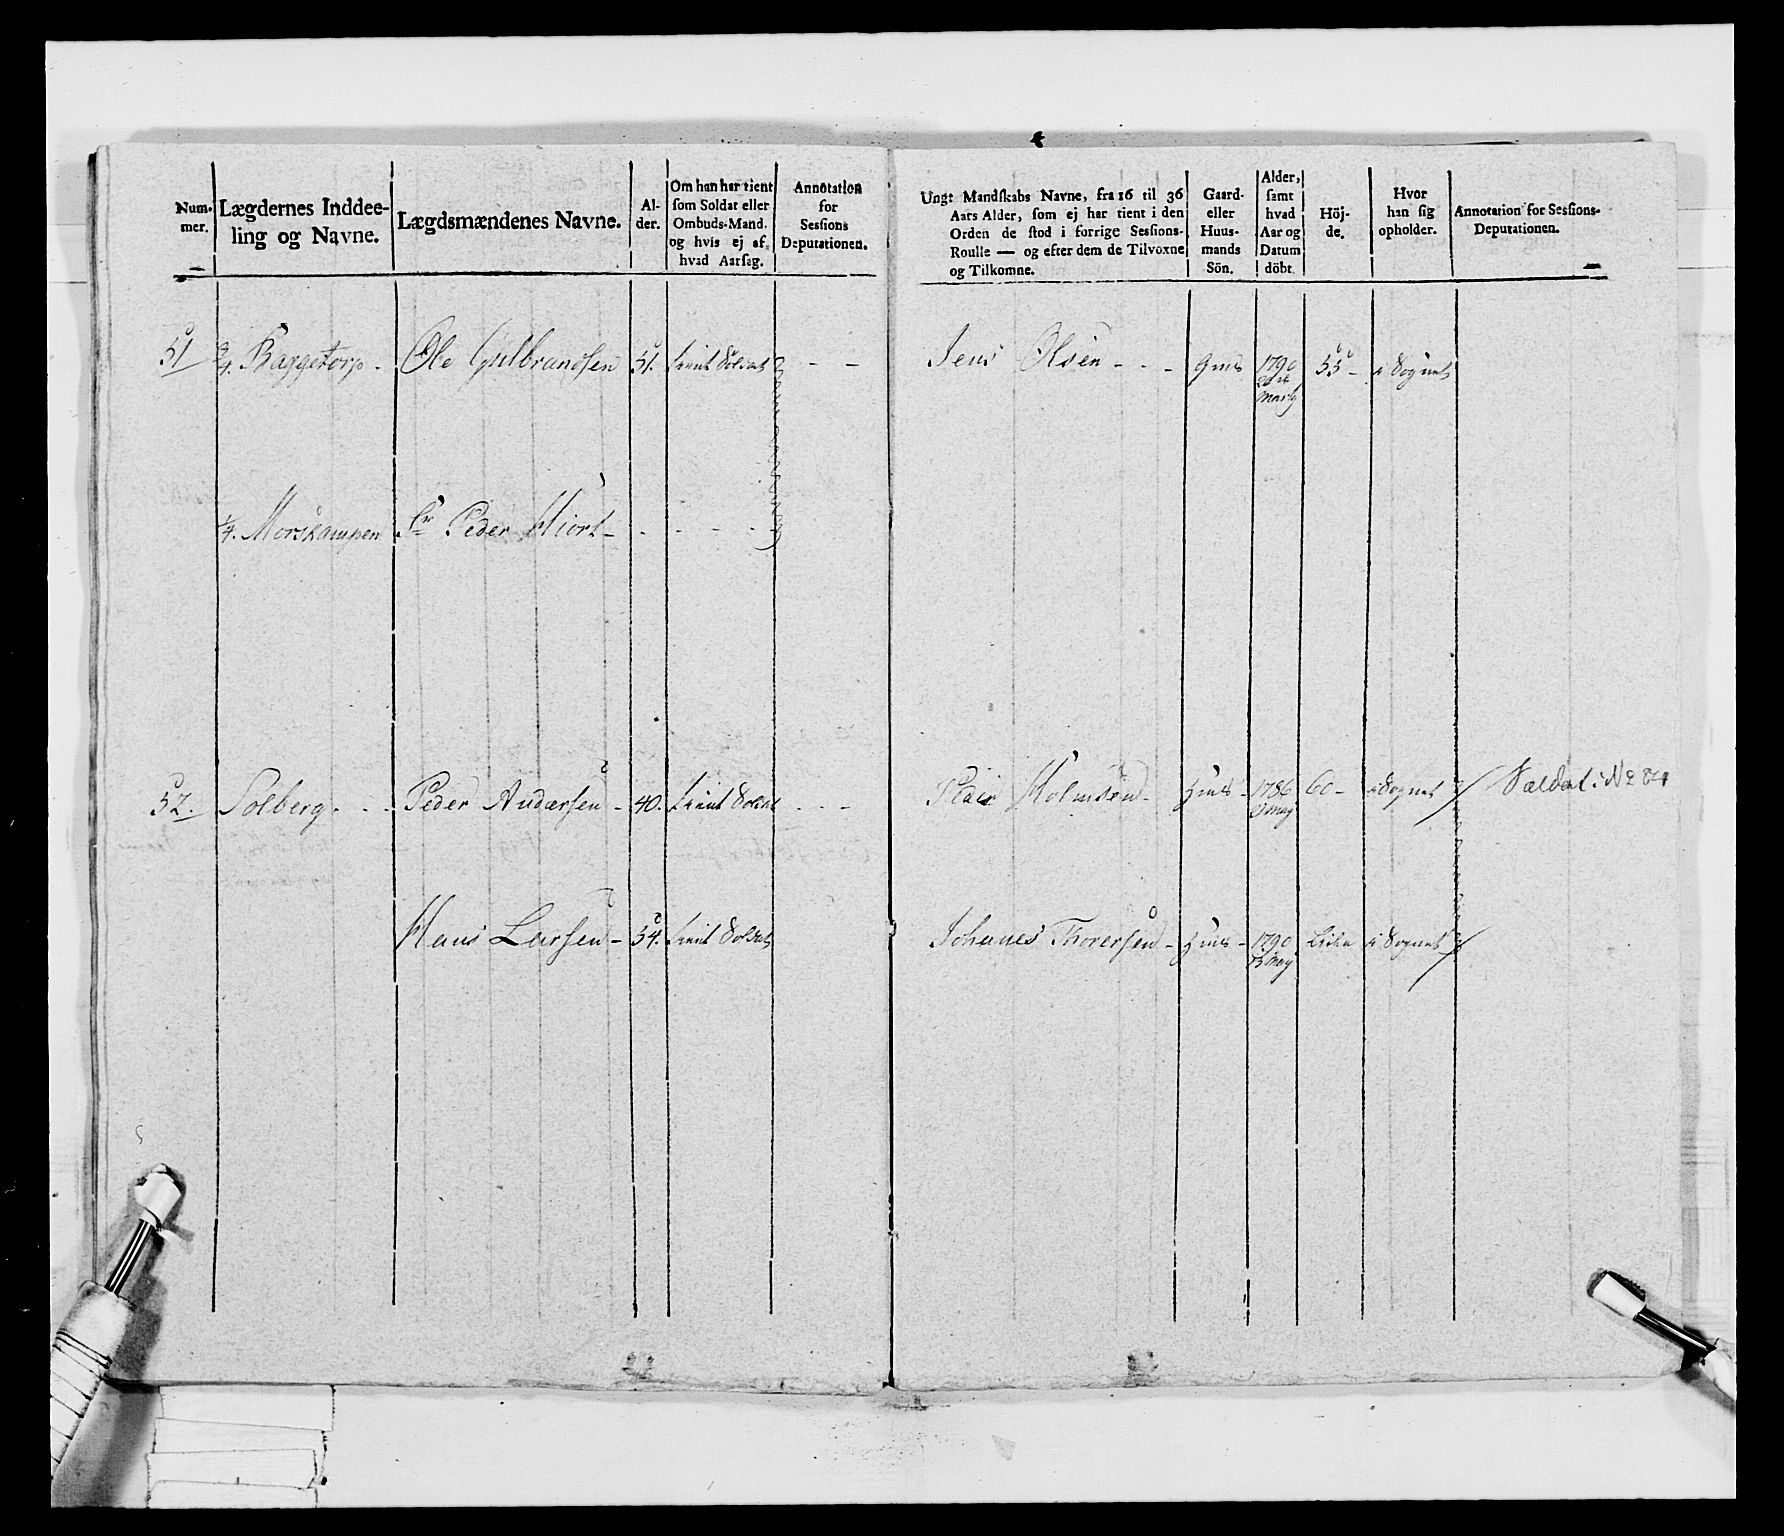 Num-
mer.
Lægdernes Inddee-
ling og Navne.
Lægdsmændenes Navne.
Al-
der.
Om han har tient
som Soldat eller
Ombuds-Mand,
og hvis ej af
hvad Aarsag.
Annotation
for
Sessions
Deputationen.
Ungt Mandskabs Navne, fra 16 til 36
Aars Alder, som ej har tient i den
Orden de stod i forrige Sessions-
Roulle — og efter dem de Tilvoxne
og Tilkomne.
Gaard-
eller
Huus-
mands
Sön.
Alder,
samt
hvad
Aar og
Datum
döbt.
Höj-
de.
Hvor
han sig
opholder.
Annotation for Sessions-
Deputationen.
51 Baggetorp - Ole Gulbrandsen 51. tient Soldat - - Jens Olsen - - - gms 1790 55 - i Sognet
Marty
1/4. Morskampen Sr Peder Hiort - - - - -
52. Solberg - - - Peder Andersen - 40. tient Soldat - - - Peder Holmsen - hms - 1786 60 - i Sognet Soldat i No 84
May
Hans Larsen - 54. tient Soldat Johanes Thorersen - hms - 1790 liden i Sognet
13 May